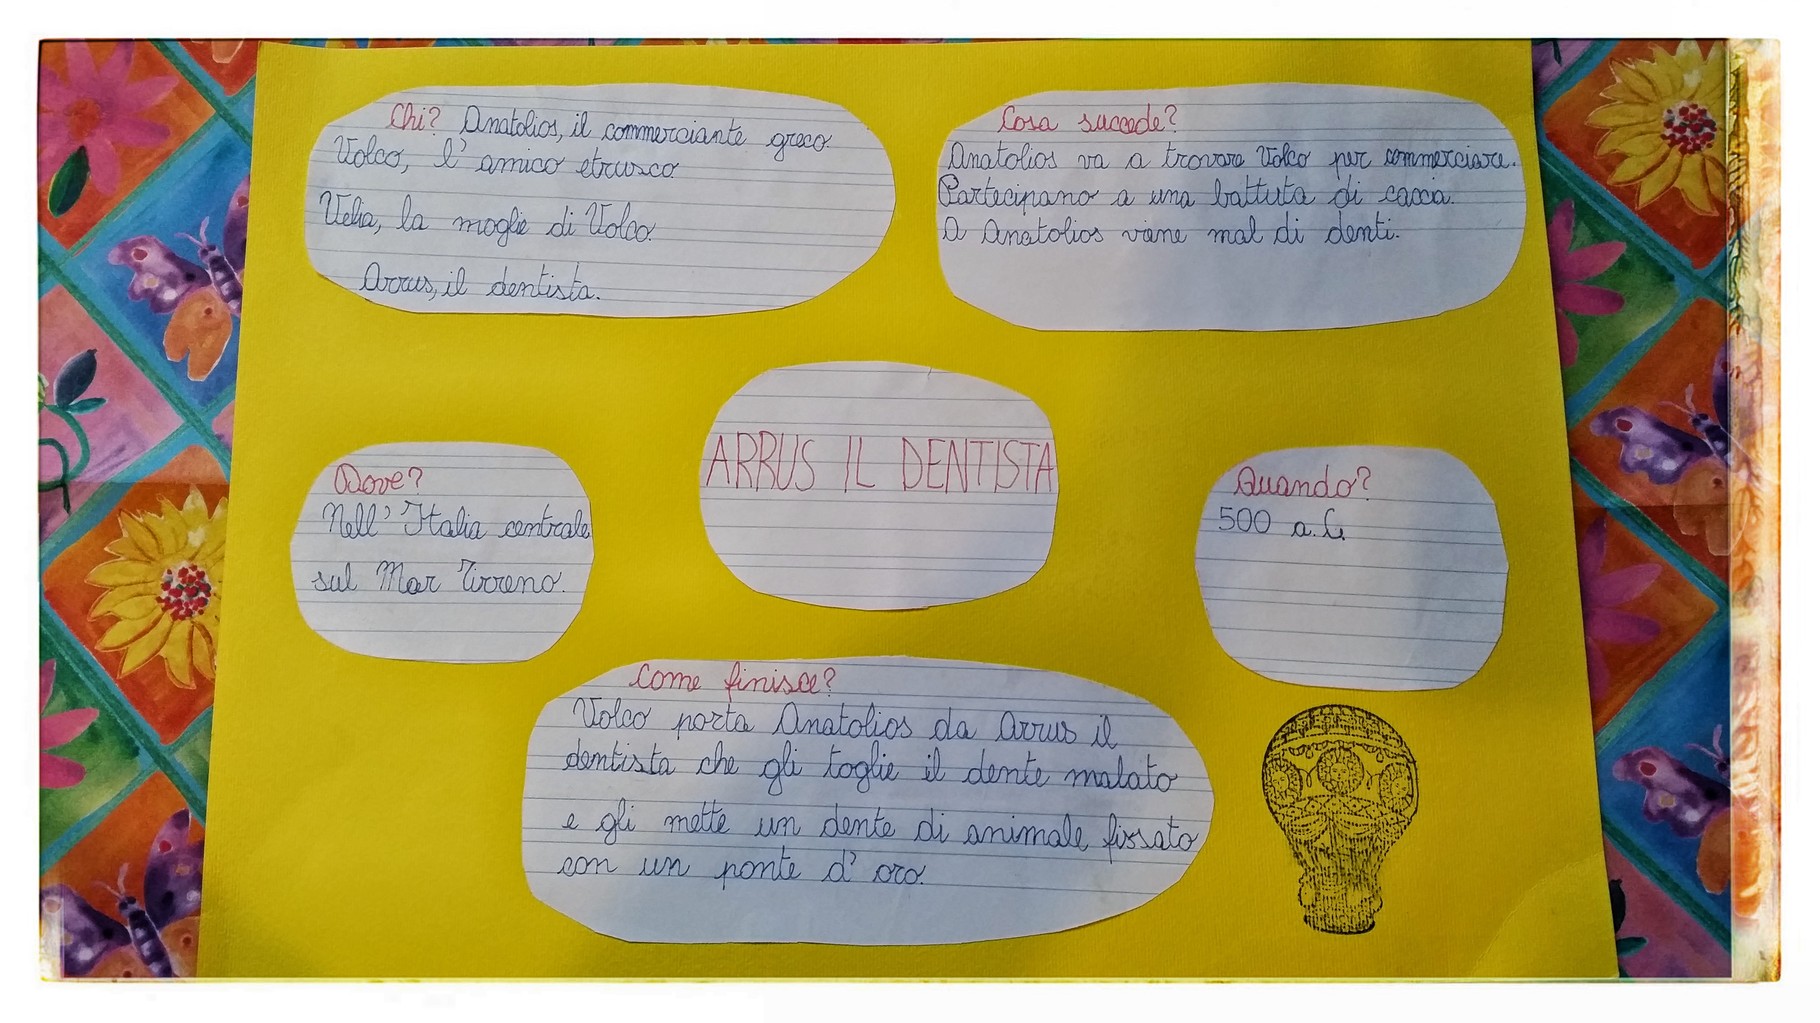 Chi? Anatolios, il commerciante greco
Volco, l'amico etrusco
Velia, la moglie di Volco.
Arrus, il dentista.
Cosa succede?
Anatolios va a trovare Volco per commerciare.
Partecipano a una battuta di caccia.
A Anatolios viene mal di denti.
ARRUS IL DENTISTA
Dove?
Nell'Italia centrale
sul Mar Tirreno.
Quando?
500 a.C.
Come finisce?
Volco porta Anatolios da Arrus il
dentista che gli toglie il dente malato
e gli mette un dente di animale fissato
con un ponte d'oro.